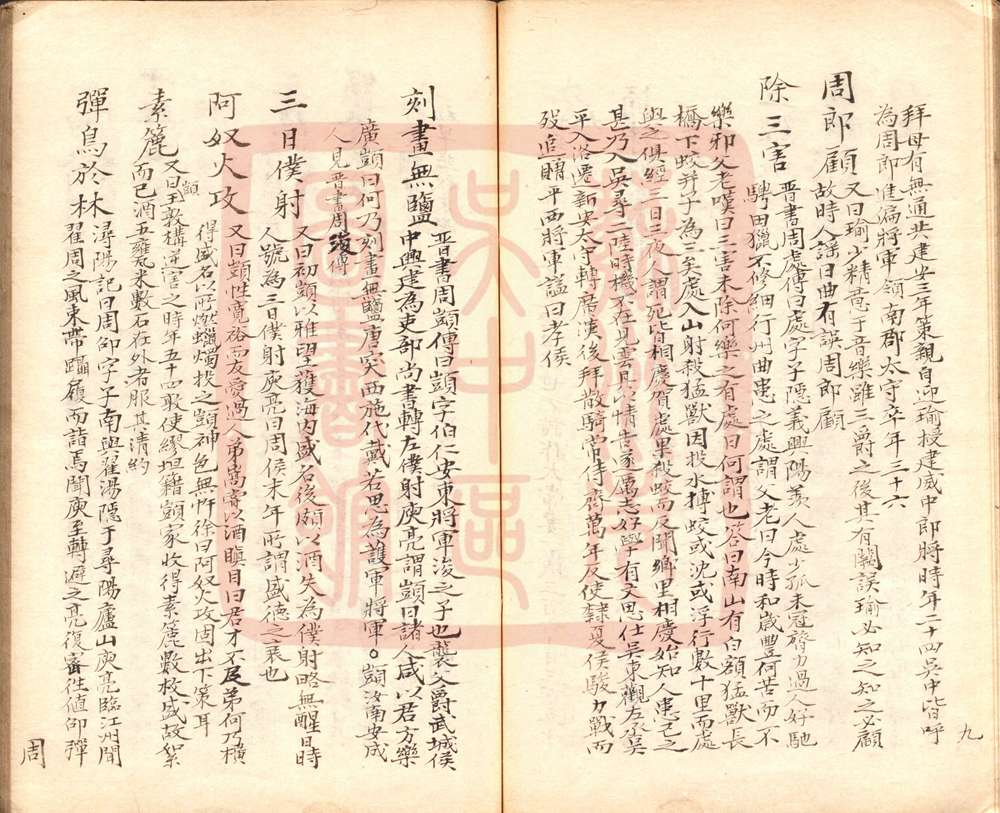 拜母有無通共建安三年策親自迎瑜授建威中郎將時年二十四吳中皆呼
為周郎進偏將軍領南郡太守卒年三十六
周郎顧 又曰瑜少精意于音樂雖三爵之後其有闕誤瑜必知之知之必顧
故時人謠曰曲有誤周郎顧
除三害 晋書周處傳曰處字子隱義興陽羨人處少孤未冠膂力過人好馳
騁田獵不修細行州曲患之處謂父老曰今時和歲豐何苦而不
樂邪父老嘆曰三害未除何樂之有處曰何謂也答曰南山有白額猛獸長
橋下蛟并子為三矣處入山射殺猛獸因投水搏蛟或沈或浮行數十里而處
與之俱經三日三夜人謂死皆相慶賀處果殺蛟而反聞鄉里相慶始知人患己之
甚乃入吳尋二陸時機不在見雲具以情告遂厲志好學有文思仕吳東觀左丞吳
平入洛遷新安太守轉廣漢後拜散騎常侍齊萬年反使隸夏侯駿力戰而
歿追贈平西將軍謚曰孝侯
九
刻畫無鹽 晋書周顗傳曰顗字伯仁安東將軍浚之子也襲父爵武城侯
中興建為吏部尚書轉左僕射庾亮謂顗曰諸人咸以君方樂
廣顗曰何乃刻畫無鹽唐突西施代戴若思為護軍將軍○顗汝南安成
人見晋書周浚傳
三日僕射 又曰初顗以雅望獲海內盛名後頗以酒失為僕射略無醒日時
人號為三日僕射庾亮曰周侯末年所謂盛德之衰也
阿奴火攻 又曰顗性寬裕而友愛過人弟嵩嘗以酒瞋目曰君才不及弟何乃橫
得盛名以所燃蠟燭投之顗神色無忤徐曰阿奴火攻固出下策耳
素簏 又曰王敦構逆顗害之時年五十四敦使繆坦籍顗家收得素簏數枚盛故絮
而已酒五甕米數石在外者服其清約
彈鳥於林 潯陽記曰周邵字子南與翟湯隱于尋陽廬山庾亮臨江州聞
翟周之風束帶躡履而詣焉聞庾至轉避之亮復審徃值邵彈
周